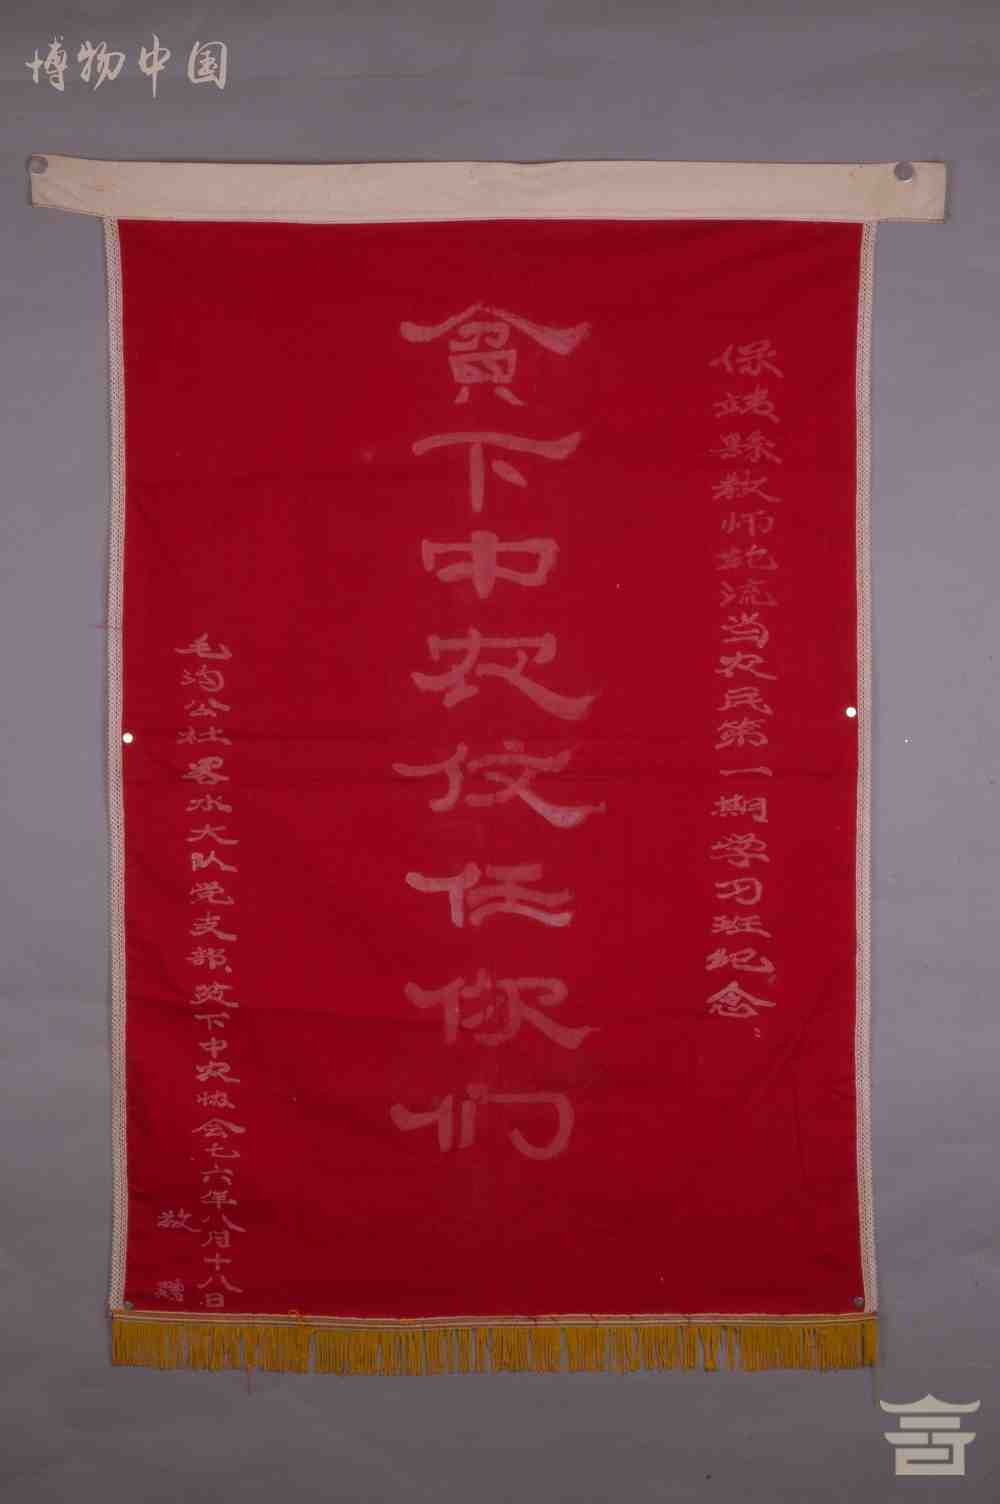 博物中国
保靖縣教师轮流当农民第一期学习班纪念：
貧下中农伩任你们
毛沟公社畧水大队党支部、贫下中农协会七六年八月十八日
敬赠